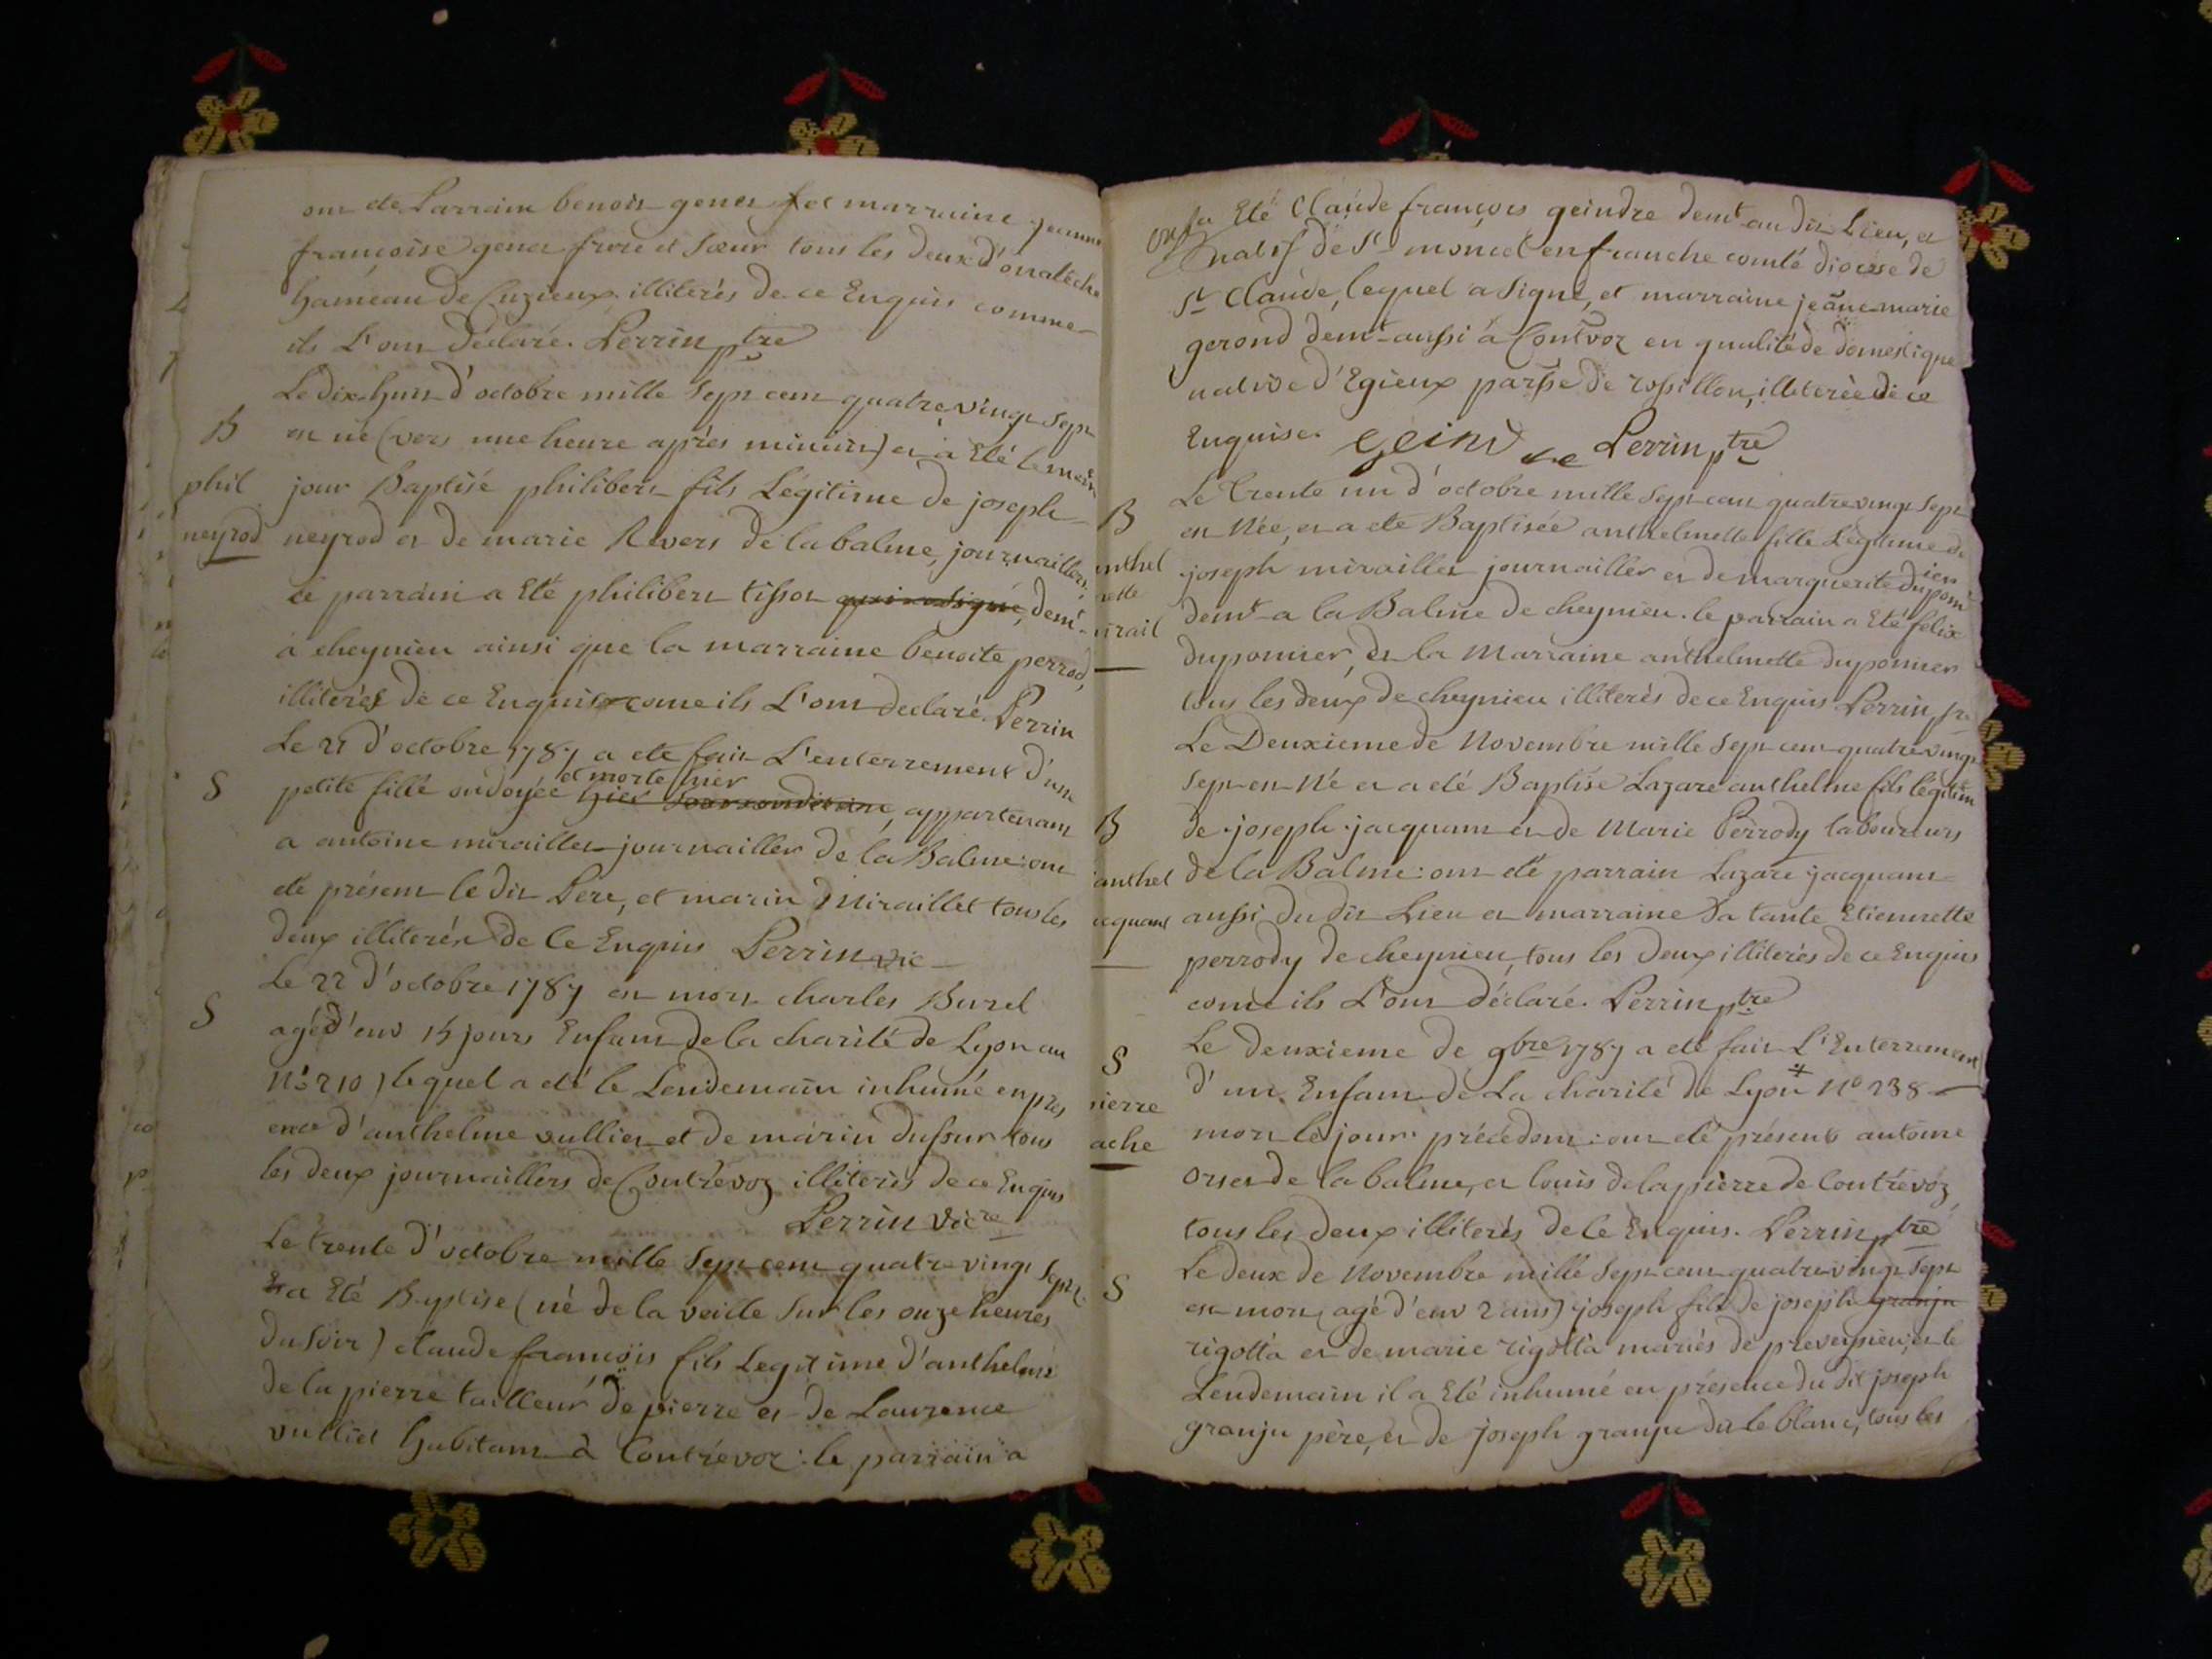 ont été Parrain benoit genet et marraine jeanne
françoise genet frere et sœur tous les deux d'onaleche
hameau de Cuzieux illiterés de ce Enquis comme
ils L'ont Déclaré. Perrin ptre
Le dix-huit d'octobre mille sept cent quatre vingt sept
B
est né (vers une heure après minuit) et a Eté le mesme
phil
jour Baptisé philibert fils Légitime de joseph
neyrod
neyrod et de marie Revers de la balme, journaillers,
le parrain a Eté philibert tissot qui a signé, demt
à cheynieu ainsi que la marraine benoite perrod,
illiterés de ce Enquis come ils L'ont declaré Perrin
Le 21 d'octobre 1787 a eté fait L'enterrement d'une
et morte hier
S
petite fille ondoyée hier, appartenant
a antoine miraillet journaillier de la Balme: ont
été présent le dit Pere, et marin Miraillet tous les
deux illiterés de Ce Enquis Perrin vic
Le 22 d'octobre 1787 est mort charles Burel
S
agé d'env 15 jours Enfant de la charité de Lyon au
No 210) lequel a eté le Lendemain inhumé en pres
ence d'anthelme vulliet et de marin dufsur tous
les deux journaillers de Contrevoz illiterés de ce Enquis
Perrin Vicre
Le trente d'octobre mille sept cent quatre vingt sept
a Eté Baptisé (né de la veille sur les onze heures
du soir) claude françois fils Legitime d'anthelme
de la pierre tailleur de pierre et de Laurence
vulliet habitant à Contrévoz: le parrain a
Eté Claude françois geindre demt au dit Lieu, et
natif de St moncel en franche comté diocese de
St Claude, lequel a signé, et marraine jeane marie
gerond demt aussi à Contvoz en qualité de domestique
native d'Egieux parsse de rossillon, illiterée de ce
Enquise. geindre Perrin ptre
Le trente un d'octobre mille sept cent quatre vingt sept
B
est Née, et a eté Baptisée anthelmette fille Légitime de
anthel
joseph miraillet journaillier et de marguerite dupom
ier
mette
demt a la Balme de cheynieu. le parrain a Eté felix
mirail
dupomier, et la Marraine anthelmette dupomier
tous les deux de cheynieu illiterés de ce Enquis Perrin ptre
Le Deuxieme de Novembre mille sept cent quatre vingt
sept est Né et a eté Baptisé Lazare anthelme fils légitim
B
de joseph jacquant et de Marie Perrody laboureurs
anthel
de la Balme: ont eté parrain Lazare jacquant
acquant
aussi du dit Lieu et marraine Sa tante Etiennette
perrody de cheynieu, tous les deux illiterés de ce Enquis
come ils L'ont déclaré. Perrin ptre
S
Le deuxieme de 9bre 1787 a eté fait L'Enterrement
d'un Enfant de La charité de Lyon # No 238
pierre
ache
mort le jour précédent: ont eté présents antoine
orset de la balme, et louis delapierre de Contrévoz,
tous les deux illiterés de Ce Enquis. Perrin ptre
Le deux de Novembre mille sept cent quatre vingt sept
S
est mort (agé d'env 2 ans) joseph fils de joseph granju
rigotta et de marie rigotta mariés de preveysieu, et le
Lendemain il a Eté inhumé en présence du dit joseph
granju père, et de joseph granju dit le blanc, tous les